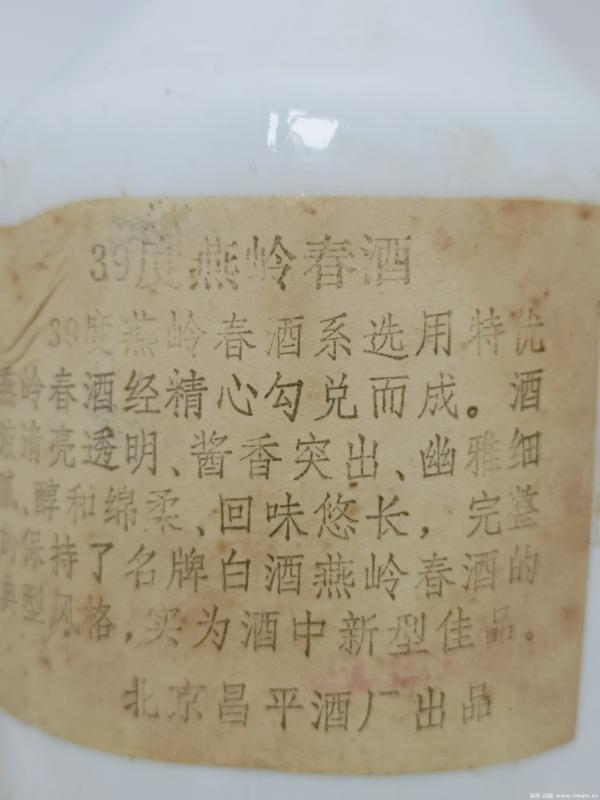 39度燕岭春酒
39度燕岭春酒系选用特优
燕岭春酒经精心勾兑而成。酒
液清亮透明、酱香突出、幽雅细
腻、醇和绵柔、回味悠长，完整
的保持了名牌白酒燕岭春酒的
典型风格，实为酒中新型佳品。
北京昌平酒厂出品